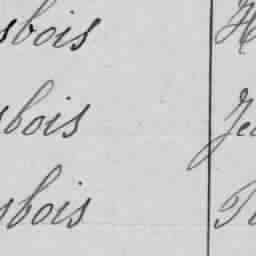 sbois H
sbois Je
sbois